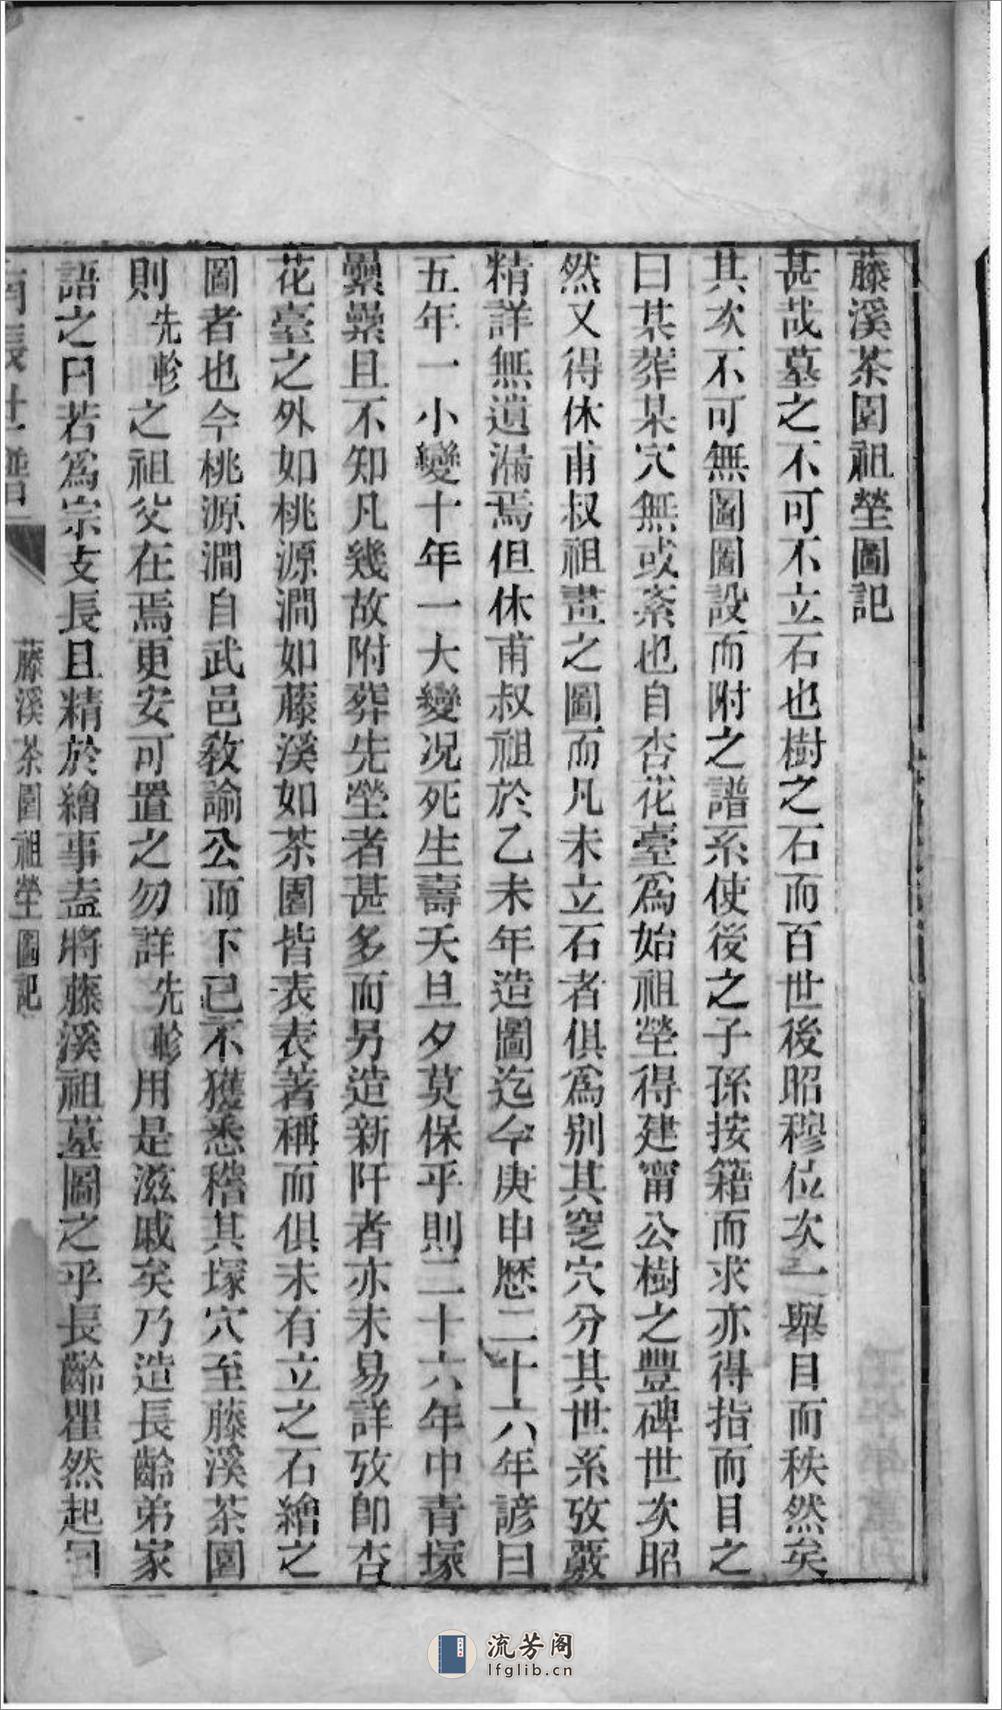 藤溪茶園祖塋圖記
甚哉墓之不可不立石也樹之石而百世後昭穆位次一舉目而秩然矣
其次不可無圖圖設而附之譜系使後之子孫按籍而求亦得指而目之
曰某葬某穴無或紊也自杏花臺為始祖塋得建甯公樹之豐碑世次昭
然又得休甫叔祖畫之圖而凡未立石者俱為別其窆穴分其世系攷覈
精詳無遺漏焉但休甫叔祖於乙未年造圖迄今庚申歷二十六年諺曰
五年一小變十年一大變况死生壽夭旦夕莫保乎則二十六年中青塚
纍纍且不知凡幾故附葬先塋者甚多而另造新阡者亦未易詳攷卽杏
花臺之外如桃源澗如藤溪如茶園皆表表著稱而俱未有立之石繪之
圖者也今桃源澗自武邑教諭公而下已不獲悉稽其塚穴至藤溪茶園
則先軫之祖父在焉更安可置之勿詳先軫用是滋戚矣乃造長齡弟家
語之曰若為宗支長且精於繪事盍將藤溪祖墓圖之乎長齡瞿然起曰
藤溪茶園祖塋圖記
流芳阁
lfglib.cn